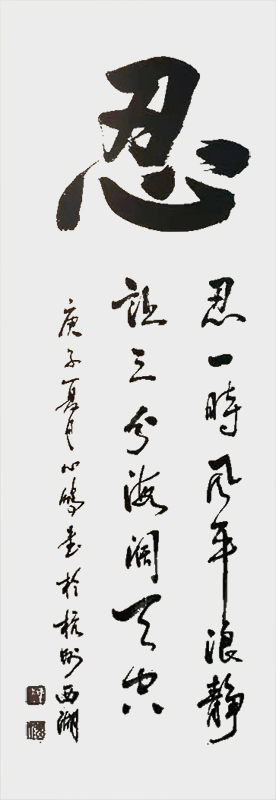 忍
忍一時風平浪靜
讓三分海闊天空
庚子夏月心鵬書於杭州西湖